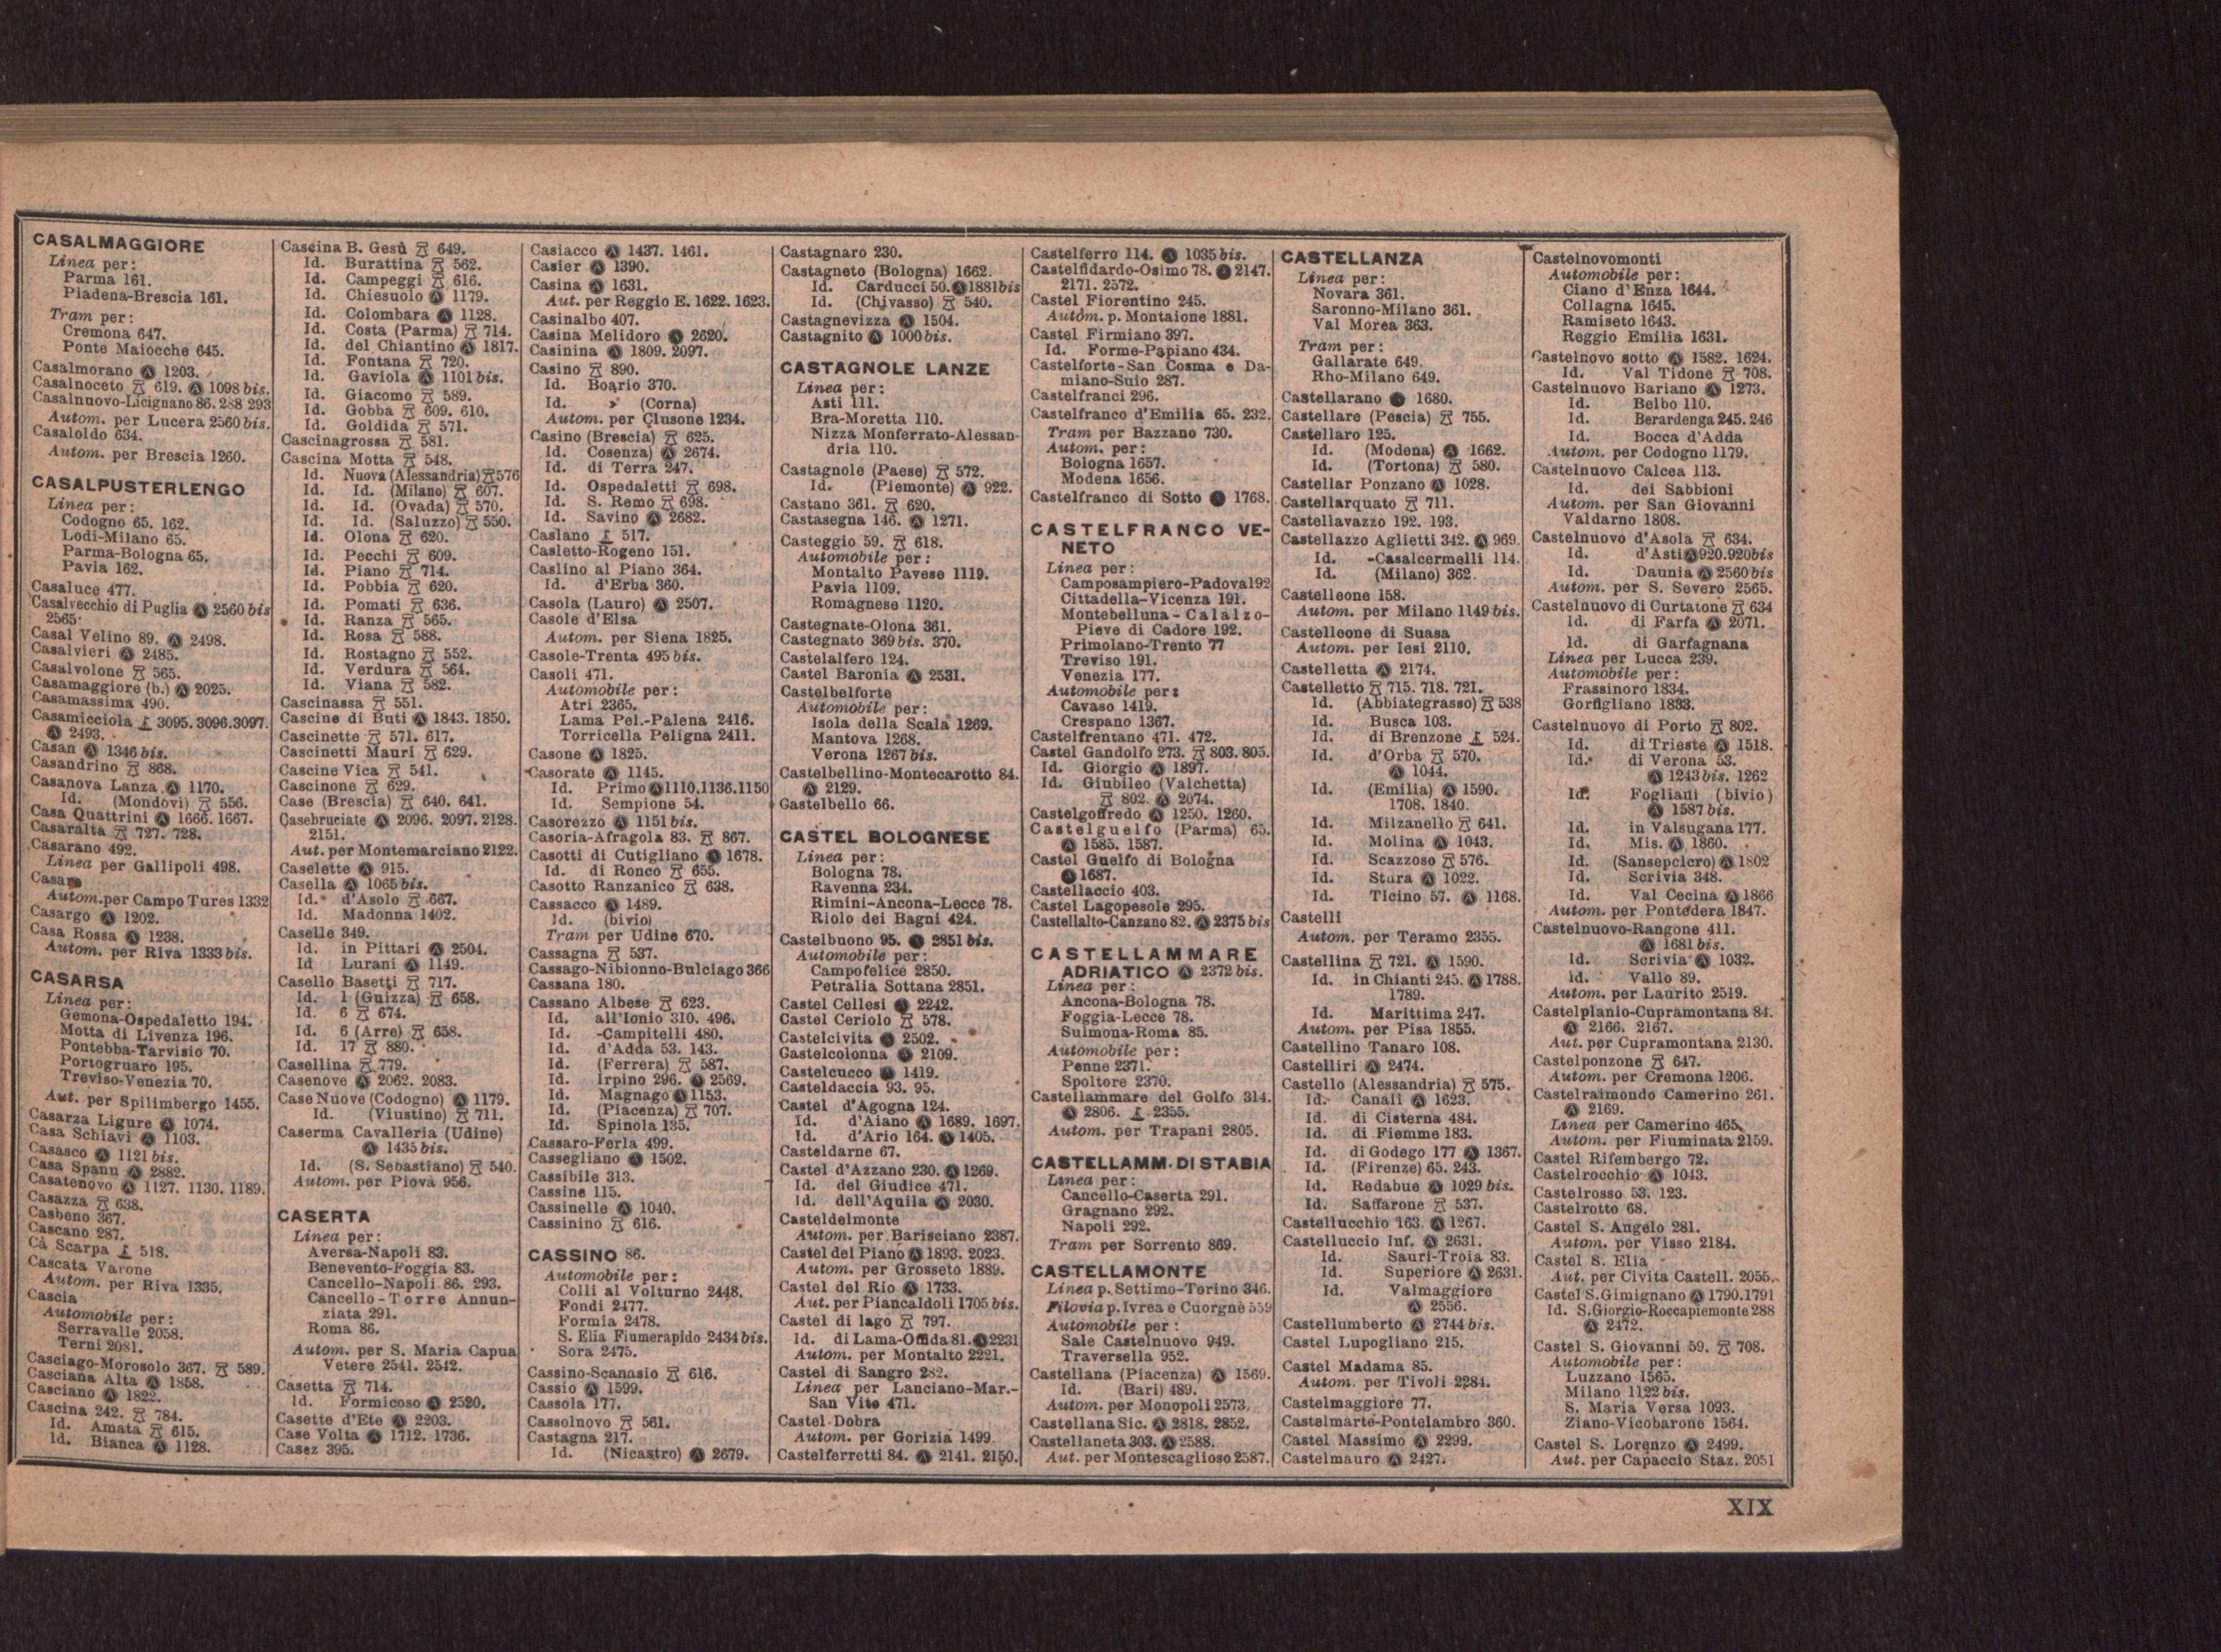 CASALMAGGIORE
Linea per:
Parma 161.
Piadena-Brescia 161.
Tram per:
Cremona 647.
Ponte Maiocche 645.
Casalmorano Ⓐ 1203.
Casalnoceto 619. Ⓐ 1098 bis.
Casalnuovo-Licignano 86. 288 293
Autom. per Lucera 2560 bis.
Casaloldo 634.
Autom. per Brescia 1260.
CASALPUSTERLENGO
Linea per:
Codogno 65. 162.
Lodi-Milano 65.
Parma-Bologna 65.
Pavia 162.
Casaluce 477.
Casalvecchio di Puglia Ⓐ 2560 bis
2565.
Casal Velino 89. Ⓐ 2498.
Casalvieri Ⓐ 2485.
Casalvolone 565.
Casamaggiore (b.) Ⓐ 2025.
Casamassima 490.
Casamicciola 3095. 3096. 3097.
Ⓐ 2493.
Casan Ⓐ 1346 bis.
Casandrino 868.
Casanova Lanza Ⓐ 1170.
Id. (Mondovì) 556.
Casa Quattrini Ⓐ 1666. 1667.
Casaralta 727. 728.
Casarano 492.
Linea per Gallipoli 498.
Casare
Autom. per Campo Tures 1332
Casargo Ⓐ 1202.
Casa Rossa Ⓐ 1238.
Autom. per Riva 1333 bis.
CASARSA
Linea per:
Gemona-Ospedaletto 194.
Motta di Livenza 196.
Pontebba-Tarvisio 70.
Portogruaro 195.
Treviso-Venezia 70.
Aut. per Spilimbergo 1455.
Casarza Ligure Ⓐ 1074.
Casa Schiavi Ⓐ 1103.
Casasco Ⓐ 1121 bis.
Casa Spanu Ⓐ 2882.
Casatenovo Ⓐ 1127. 1130. 1189.
Casazza 638.
Casbeno 367.
Cascano 287.
Cà Scarpa 518.
Cascata Varone
Autom. per Riva 1335.
Cascia
Automobile per:
Serravalle 2058.
Terni 2081.
Casciago-Morosolo 367. 589.
Casciana Alta Ⓐ 1858.
Casciano Ⓐ 1822.
Cascina 242. 784.
Id. Amata 615.
Id. Bianca Ⓐ 1128.
Cascina B. Gesù 649.
Id. Burattina 562.
Id. Campeggi 616.
Id. Chiesuolo Ⓐ 1179.
Id. Colombara Ⓐ 1128.
Id. Costa (Parma) 714.
Id. del Chiantino Ⓐ 1817.
Id. Fontana 720.
Id. Gaviola Ⓐ 1101 bis.
Id. Giacomo 589.
Id. Gobba 609. 610.
Id. Goldida 571.
Cascinagrossa 581.
Cascina Motta 548.
Id. Nuova (Alessandria) 576
Id. Id. (Milano) 607.
Id. Id. (Ovada) 570.
Id. Id. (Saluzzo) 550.
Id. Olona 620.
Id. Pecchi 609.
Id. Piano 714.
Id. Pobbia 620.
Id. Pomati 636.
Id. Ranza 565.
Id. Rosa 588.
Id. Rostagno 552.
Id. Verdura 564.
Id. Viana 582.
Cascinassa 551.
Cascine di Buti Ⓐ 1843. 1850.
Cascinette 571. 617.
Cascinetti Mauri 629.
Cascine Vica 541.
Cascinone 629.
Case (Brescia) 640. 641.
Casebruciate Ⓐ 2096. 2097. 2128.
2151.
Aut. per Montemarciano 2122.
Caselette Ⓐ 915.
Casella Ⓐ 1065 bis.
Id. d'Asolo 667.
Id. Madonna 1402.
Caselle 349.
Id. in Pittari Ⓐ 2504.
Id Lurani Ⓐ 1149.
Casello Basetti 717.
Id. 1 (Guizza) 658.
Id. 6 674.
Id. 6 (Arre) 658.
Id. 17 880.
Casellina 779.
Casenove Ⓐ 2062. 2083.
Case Nuove (Codogno) Ⓐ 1179.
Id. (Viustino) 711.
Caserma Cavalleria (Udine)
Ⓐ 1435 bis.
Id. (S. Sebastiano) 540.
Autom. per Piovà 956.
CASERTA
Linea per:
Aversa-Napoli 83.
Benevento-Foggia 83.
Cancello-Napoli 86. 293.
Cancello-Torre Annun-
ziata 291.
Roma 86.
Autom. per S. Maria Capua
Vetere 2541. 2542.
Casetta 714.
Id. Formicoso Ⓐ 2520.
Casette d'Ete Ⓐ 2203.
Case Volta Ⓐ 1712. 1736.
Casez 395.
Casiacco Ⓐ 1437. 1461.
Casier Ⓐ 1390.
Casina Ⓐ 1631.
Aut. per Reggio E. 1622. 1623.
Casinalbo 407.
Casina Melidoro Ⓐ 2620.
Casinina Ⓐ 1809. 2097.
Casino 890.
Id. Boario 370.
Id. » (Corna)
Autom. per Clusone 1234.
Casino (Brescia) 625.
Id. Cosenza) Ⓐ 2674.
Id. di Terra 247.
Id. Ospedaletti 698.
Id. S. Remo 698.
Id. Savino Ⓐ 2682.
Caslano 517.
Casletto-Rogeno 151.
Caslino al Piano 364.
Id. d'Erba 360.
Casola (Lauro) Ⓐ 2507.
Casole d'Elsa
Autom. per Siena 1825.
Casole-Trenta 495 bis.
Casoli 471.
Automobile per:
Atri 2365.
Lama Pel.-Palena 2416.
Torricella Peligna 2411.
Casone Ⓐ 1825.
Casorate Ⓐ 1145.
Id. Primo Ⓐ 1110.1136.1150
Id. Sempione 54.
Casorezzo Ⓐ 1151 bis.
Casoria-Afragola 83. 867.
Casotti di Cutigliano Ⓐ 1678.
Id. di Ronco 655.
Casotto Ranzanico 638.
Cassacco Ⓐ 1489.
Id. (bivio)
Tram per Udine 670.
Cassagna 537.
Cassago-Nibionno-Bulciago 366
Cassana 180.
Cassano Albese 623.
Id. all'Ionio 310. 496.
Id. -Campitelli 480.
Id. d'Adda 53. 143.
Id. (Ferrera) 587.
Id. Irpino 296. Ⓐ 2569.
Id. Magnago Ⓐ 1153.
Id. (Piacenza) 707.
Id. Spinola 135.
Cassaro-Ferla 499.
Cassegliano Ⓐ 1502.
Cassibile 313.
Cassine 115.
Cassinelle Ⓐ 1040.
Cassinino 616.
CASSINO 86.
Automobile per:
Colli al Volturno 2448.
Fondi 2477.
Formia 2478.
S. Elia Fiumerapido 2434 bis.
Sora 2475.
Cassino-Scanasio 616.
Cassio Ⓐ 1599.
Cassola 177.
Cassolnovo 561.
Castagna 217.
Id. (Nicastro) Ⓐ 2679.
Castagnaro 230.
Castagneto (Bologna) 1662.
Id. Carducci 50. Ⓐ 1881bis
Id. (Chivasso) 540.
Castagnevizza Ⓐ 1504.
Castagnito Ⓐ 1000 bis.
CASTAGNOLE LANZE
Linea per:
Asti 111.
Bra-Moretta 110.
Nizza Monferrato-Alessan-
dria 110.
Castagnole (Paese) 572.
Id. (Piemonte) Ⓐ 922.
Castano 361. 620.
Castasegna 146. Ⓐ 1271.
Casteggio 59. 618.
Automobile per:
Montalto Pavese 1119.
Pavia 1109.
Romagnese 1120.
Castegnate-Olona 361.
Castegnato 369 bis. 370.
Castelalfero 124.
Castel Baronia Ⓐ 2531.
Castelbelforte
Automobile per:
Isola della Scala 1269.
Mantova 1268.
Verona 1267 bis.
Castelbellino-Montecarotto 84.
Ⓐ 2129.
Gastelbello 66.
CASTEL BOLOGNESE
Linea per:
Bologna 78.
Ravenna 234.
Rimini-Ancona-Lecce 78.
Riolo dei Bagni 424.
Castelbuono 95. Ⓐ 2851 bis.
Automobile per:
Campofelice 2850.
Petralia Sottana 2851.
Castel Cellesi Ⓐ 2242.
Castel Ceriolo 578.
Castelcivita Ⓐ 2502.
Gastelcolonna Ⓐ 2109.
Castelcucco Ⓐ 1419.
Casteldaccia 93. 95.
Castel d'Agogna 124.
Id. d'Aiano Ⓐ 1689. 1697.
Id. d'Ario 164. Ⓐ 1405.
Casteldarne 67.
Castel d'Azzano 230. Ⓐ 1269.
Id. del Giudice 471.
Id. dell'Aquila Ⓐ 2030.
Casteldelmonte
Autom. per Barisciano 2387.
Castel del Piano Ⓐ 1893. 2023.
Autom. per Grosseto 1889.
Castel del Rio Ⓐ 1733.
Aut. per Piancaldoli 1705 bis.
Castel di lago 797.
Id. di Lama-Offida 81. Ⓐ 2231
Autom. per Montalto 2221.
Castel di Sangro 282.
Linea per Lanciano-Mar.-
San Vito 471.
Castel Dobra
Autom. per Gorizia 1499.
Castelferretti 84. Ⓐ 2141. 2150.
Castelferro 114. Ⓐ 1035 bis.
Castelfidardo-Osimo 78. Ⓐ 2147.
2171. 2572.
Castel Fiorentino 245.
Autom. p. Montaione 1881.
Castel Firmiano 397.
Id. Forme-Papiano 434.
Castelforte-San Cosma e Da-
miano-Suio 287.
Castelfranci 296.
Castelfranco d'Emilia 65. 232.
Tram per Bazzano 730.
Autom. per:
Bologna 1657.
Modena 1656.
Castelfranco di Sotto Ⓐ 1768.
CASTELFRANCO VE-
NETO
Linea per:
Camposampiero-Padova192
Cittadella-Vicenza 191.
Montebelluna-Calalzo-
Pieve di Cadore 192.
Primolano-Trento 77
Treviso 191.
Venezia 177.
Automobile per:
Cavaso 1419.
Crespano 1367.
Castelfrentano 471. 472.
Castel Gandolfo 273. 803. 805.
Id. Giorgio Ⓐ 1897.
Id. Giubileo (Valchetta)
802. Ⓐ 2074.
Castelgoffredo Ⓐ 1250. 1260.
Castelguelfo (Parma) 65.
Ⓐ 1585. 1587.
Castel Guelfo di Bologna
Ⓐ 1687.
Castellaccio 403.
Castel Lagopesole 295.
Castellalto-Canzano 82. Ⓐ 2375 bis
CASTELLAMMARE
ADRIATICO Ⓐ 2372 bis.
Linea per:
Ancona-Bologna 78.
Foggia-Lecce 78.
Sulmona-Roma 85.
Automobile per:
Penne 2371.
Spoltore 2370.
Castellammare del Golfo 314.
Ⓐ 2806. 2355.
Autom. per Trapani 2805.
CASTELLAMM. DI STABIA
Linea per:
Cancello-Caserta 291.
Gragnano 292.
Napoli 292.
Tram per Sorrento 869.
CASTELLAMONTE
Linea p. Settimo-Torino 346.
Filovia p. Ivrea e Cuorgnè 559
Automobile per:
Sale Castelnuovo 949.
Traversella 952.
Castellana (Piacenza) Ⓐ 1569.
Id. (Bari) 489.
Autom. per Monopoli 2573.
Castellana Sic. Ⓐ 2818. 2852.
Castellaneta 303. Ⓐ 2588.
Aut. per Montescaglioso 2587.
CASTELLANZA
Linea per:
Novara 361.
Saronno-Milano 361.
Val Morea 363.
Tram per:
Gallarate 649.
Rho-Milano 649.
Castellarano Ⓐ 1680.
Castellare (Pescia) 755.
Castellaro 125.
Id. (Modena) Ⓐ 1662.
Id. (Tortona) 580.
Castellar Ponzano Ⓐ 1028.
Castellarquato 711.
Castellavazzo 192. 193.
Castellazzo Aglietti 342. Ⓐ 969.
Id. -Casalcermelli 114.
Id. (Milano) 362.
Castelleone 158.
Autom. per Milano 1149 bis.
Castelleone di Suasa
Autom. per Iesi 2110.
Castelletta Ⓐ 2174.
Castelletto 715. 718. 721.
Id. (Abbiategrasso) 538
Id. Busca 103.
Id. di Brenzone 524.
Id. d'Orba 570.
Ⓐ 1044.
Id. (Emilia) Ⓐ 1590.
1708. 1840.
Id. Milzanello 641.
Id. Molina Ⓐ 1043.
Id. Scazzoso 576.
Id. Stura Ⓐ 1022.
Id. Ticino 57. Ⓐ 1168.
Castelli
Autom. per Teramo 2355.
Castellina 721. Ⓐ 1590.
Id. in Chianti 245. Ⓐ 1788.
1789.
Id. Marittima 247.
Autom. per Pisa 1855.
Castellino Tanaro 108.
Castelliri Ⓐ 2474.
Castello (Alessandria) 575.
Id. Canali Ⓐ 1623.
Id. di Cisterna 484.
Id. di Fiemme 183.
Id. di Godego 177 Ⓐ 1367.
Id. (Firenze) 65. 243.
Id. Redabue Ⓐ 1029 bis.
Id. Saffarone 537.
Castellucchio 163. Ⓐ 1267.
Castelluccio Inf. Ⓐ 2631.
Id. Sauri-Troia 83.
Id. Superiore Ⓐ 2631.
Id. Valmaggiore
Ⓐ 2556.
Castellumberto Ⓐ 2744 bis.
Castel Lupogliano 215.
Castel Madama 85.
Autom. per Tivoli 2284.
Castelmaggiore 77.
Castelmarte-Pontelambro 360.
Castel Massimo Ⓐ 2299.
Castelmauro Ⓐ 2427.
Castelnovomonti
Automobile per:
Ciano d'Enza 1644.
Collagna 1645.
Ramiseto 1643.
Reggio Emilia 1631.
Castelnovo sotto Ⓐ 1582. 1624.
Id. Val Tidone 708.
Castelnuovo Bariano Ⓐ 1273.
Id. Belbo 110.
Id. Berardenga 245. 246
Id. Bocca d'Adda
Autom. per Codogno 1179.
Castelnuovo Calcea 113.
Id. dei Sabbioni
Autom. per San Giovanni
Valdarno 1808.
Castelnuovo d'Asola 634.
Id. d'Asti Ⓐ 920.920bis
Id. Daunia Ⓐ 2560 bis
Autom. per S. Severo 2565.
Castelnuovo di Curtatone 634
Id. di Farfa Ⓐ 2071.
Id. di Garfagnana
Linea per Lucca 239.
Automobile per:
Frassinoro 1834.
Gorfigliano 1833.
Castelnuovo di Porto 802.
Id. di Trieste Ⓐ 1518.
Id. di Verona 53.
Ⓐ 1243 bis. 1262
Id. Fogliani (bivio)
Ⓐ 1587 bis.
Id. in Valsugana 177.
Id. Mis. Ⓐ 1860.
Id. (Sansepolcro) Ⓐ 1802
Id. Scrivia 348.
Id. Val Cecina Ⓐ 1866
Autom. per Pontedera 1847.
Castelnuovo-Rangone 411.
Ⓐ 1681 bis.
Id. Scrivia Ⓐ 1032.
id. Vallo 89.
Autom. per Laurito 2519.
Castelplanio-Cupramontana 84.
Ⓐ 2166. 2167.
Aut. per Cupramontana 2130.
Castelponzone 647.
Autom. per Cremona 1206.
Castelraimondo Camerino 261.
Ⓐ 2169.
Linea per Camerino 465.
Autom. per Fiuminata 2159.
Castel Rifembergo 72.
Castelrocchio Ⓐ 1043.
Castelrosso 53. 123.
Castelrotto 68.
Castel S. Angelo 281.
Autom. per Visso 2184.
Castel S. Elia
Aut. per Civita Castell. 2055.
Castel S. Gimignano Ⓐ 1790.1791
Id. S. Giorgio-Roccapiemonte 288
Ⓐ 2472.
Castel S. Giovanni 59. 708.
Automobile per:
Luzzano 1565.
Milano 1122 bis.
S. Maria Versa 1093.
Ziano-Vicobarone 1564.
Castel S. Lorenzo Ⓐ 2499.
Aut. per Capaccio Staz. 2051
XIX